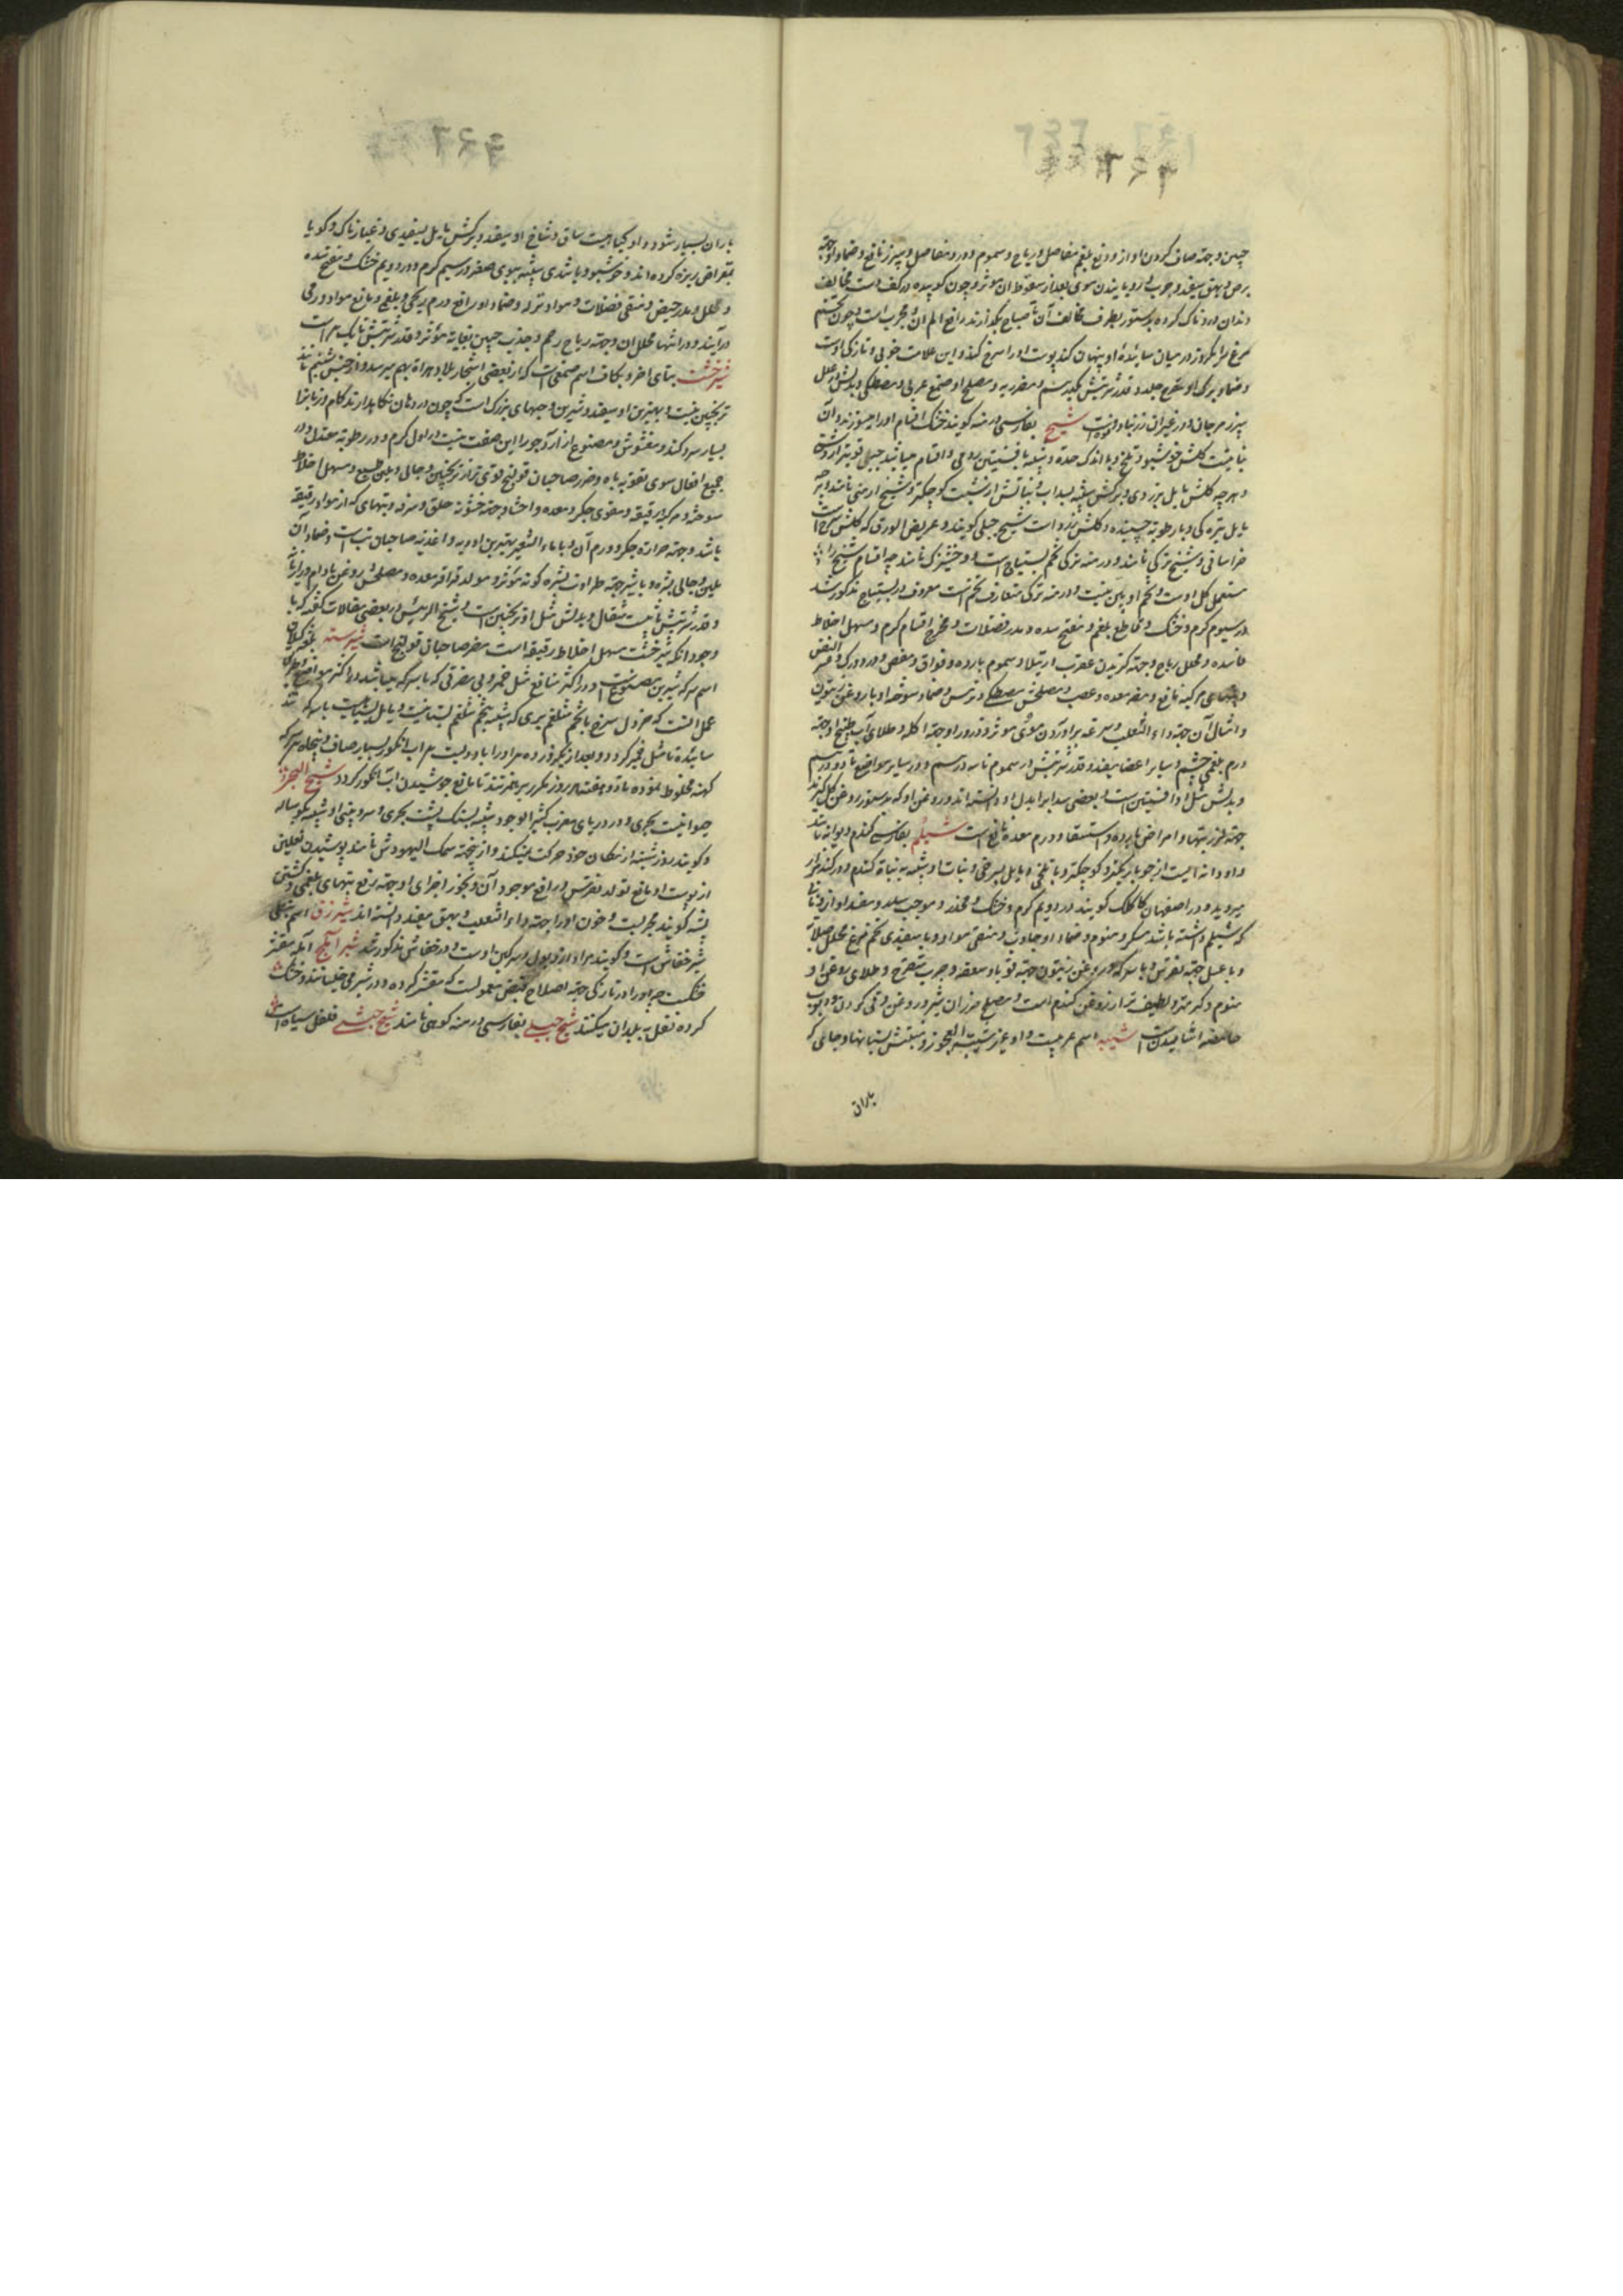 جبین و جهة صاف کردن اواز و دفع بلغم مفاصل و ریاح و سموم و درد مفاصل و سپرز نافع و ضماد او جهة
برص و بهق سفید و جرب و رویانیدن موی بعد از سقوط آن مؤثر و چون کوبیده در کف دست مخالف
دندان دردناک کرده بدستور بطرف مخالف آن تا صباح بگذارند رافع الم آن و مجرب است و چون تخم
مرغ را یکروز در میان سائیدهٔ او پنهان کنند پوست او را سرخ کند و این علامت خوبی و تازکی اوست
و ضماد برک او مقرح جلد و قدر شربتش یکدرم و مضر ریه و مصلح او صمغ عربی و مصطکی و بدلش در علل
سپرز مرجان و در غیر آن زرنباد و فوه است شیح بفارسی درمنه کویند خشک اقسام او را میسوزند و آن
نباتیست کلش خوشبو و تلخ و با اندک حدة و شبیه بافسنتین رومی و اقسام میباشد جبلی قویتر از دشتی
و هرچه کلش مایل بزردی و برکش شبیه بسداب و نباتش از شبت کوچکتر و شیح ارمنی نامند و آنچه
مایل بتیره کی و با رطوبة چسبنده و کلش زرد است شیح جبلی کویند و عریض الورق که کلش سرخ است
خراسانی و شیح ترکی نامند و درمنه ترکی تخم بستیاج است و وخشیزک نامند چه اقسام شیح را
مستعمل کل اوست و تخم او باین نیست و درمنه ترکی متعارف تخم است معروف و در بستیاج مذکور شد
در سیوم کرم و خشک و قاطع بلغم و مفتح سده و مدر فضلات و مخرج اقسام کرم و مسهل اخلاط
فاسده و محلل ریاح و جهة کزیدن عقرب و رتیلا و سموم بارده و فواق و مغص و درد ورک و عسر النفس
و تبهای مرکبه نافع و مضر معده و عصب و مصلحش مصطکی و ترمس و ضماد سوخته او با روغن زیتون
و امثال آن جهة داء الثعلب و سرعة برآوردن موی مؤثر و ذرور او جهة اکله و طلای آب طبیخ او جهة
ورم بلغمی چشم و سایر اعضا مفید و قدر شربتش در سموم تا سه درسم و در سایر مواضع تا دو درسم
و بدلش مثل او افسنتین است و بعضی سداب را بدل او دانسته اند و روغن او که بدستور روغن کل کیرند
جهة لرز تبها و امراض بارده و استسقا و ورم معده نافع است شیلم بفارسی کندم دیوانه نامند
و او دانه ایست از جو باریکتر و کوچکتر و با تلخی و مایل بسرخی و نبات او شبیه به نباة کندم و در کندم زار
میروید و در اصفهان کاکلک کویند در دویم کرم و خشک و مخدر و موجب سدد و مفسد او از دماغ نانی
که شیلم داشته باشد مسکر و منوم و ضماد او جاذب و منقی مواد و با سفیدی تخم مرغ محلل صلابة
و با عسل جهة نقرس و با سرکه و روغن زیتون جهة قوبا و سعفه و جرب متقرح و طلای روغن او
منوم و کرمتر و لطیف تر از روغن کندم است و مصلح مزران شیر و روغن و قی کردن و ربوب
حامضه اشامیدنست شیبه اسم عربیست و او غیر شیبة العجوز و منبتش بستانها و جائی که
باران
باران بسیار شود و او کیاهیست ساق و شاخ او سفید و برکش مایل بسفیدی و غبارناک و کویا
بمقراض ریزه کرده اند و خوشبو و با تندی شبیه ببوی صعتر در سیم کرم و در دویم خشک و مفتح سده
و محلل و مدر حیض و منقی فضلات و سواد تر او و ضماد او رافع ورم ریحی و بلغمی و مانع مواد ورمی
درآیند و در انتها محلل آن و جهة ریاح رحم و جذب جنین بغایة مؤثر و قدر شربتش تا یکدرم است
شیرخشت بتای اخر و بکاف اسم صمغی است که از بعضی اشجار بلاد هراة بهم میرسد و از جنس شبنم مانند
ترنجبین نیست و بهترین او سفید و شیرین و حبهای بزرک است که چون در دهان نکاهدارند کام و زبان را
بسیار سرد کند و مغشوش و مصنوع از ارد جو را این صفت نیست در اول کرم و در رطوبة معتدل و در
جمیع افعال سوی تقویة باه و ضرر صاحبان قولنج قوی تر از ترنجبین و جالی و ملین طبع و مسهل اخلاط
سوخته و مرکه رقیقه و مقوی جکر و معده و احشا و جهة خشونة حلق و سرفه و تبهای که از مواد رقیقه
باشد و جهة حرارة جکر و ورم آن و با ماء الشعیر بهترین ادویه و اغذیه صاحبان تبست و ضماد آن
ملین و جالی بشره و با شیر جهة طراوت بشره کونه مؤثر و مولد قراقر معده و مصلحش روغن بادام و رازیانه
و قدر شربتش تا بیست مثقال و بدلش مثل او ترنجبین است و شیخ الرئیس در بعضی مقالات کفته که با
وجود انکه شیرخشت مسهل اخلاط رقیقه است مضر صاحبان قولنج است شیرسته بلغة کیلان
اسم سرکه شیرین مصنوع است و در اکثر منافع مثل خمر و بی مضرتی که با سرکه میباشد در اکثر مواضع
عمل انست که خردل سرخ با تخم شلغم بری که شبیه بتخم شلغم بستانیست و مایل بسیاهیست با سرکه تند
سائیده تا مثل خمیر کردد و بعد از یکروز ده من او را با دویست من آب انکور بسیار صاف و پنجاه من سرکه
کهنه مخلوط نموده تا دو هفته هر روز مکرر برهم زنند تا مانع جوشیدن آب انکور کردد شیخ البحر
حیوانیست بحری و در دریای مغرب کثیر الوجود شبیه بسنک پشت بحری و سر و بینی او شبیه بکوساله
و کویند روز شنبه از مکان خود حرکت نمیکند و از اینجهة سمک الیهودش نامند پوشیدن نعلین
از پوست او مانع تولد نقرس و رافع موجود آن و بخور اجزای او جهة رفع تبهای بلغمی و کشتن
پشه کویند مجربست و خون او را جهة داء الثعلب و بهق مفید دانسته اند شیرزق اسم نبطی
شیر خفاش است و کویند مراد از او بول و سرکین اوست و در خفاش مذکور شد شیر املج آمله مقشر
خشکست چه او را در تازکی جهة اصلاح قبض معمولست که مقشر کرده و در شیر می خیسانند و خشک
کرده نقل به بلدان میکنند شیح جبلی بفارسی درمنه کوهی نامند شیح حبشی فلفل سیاه است